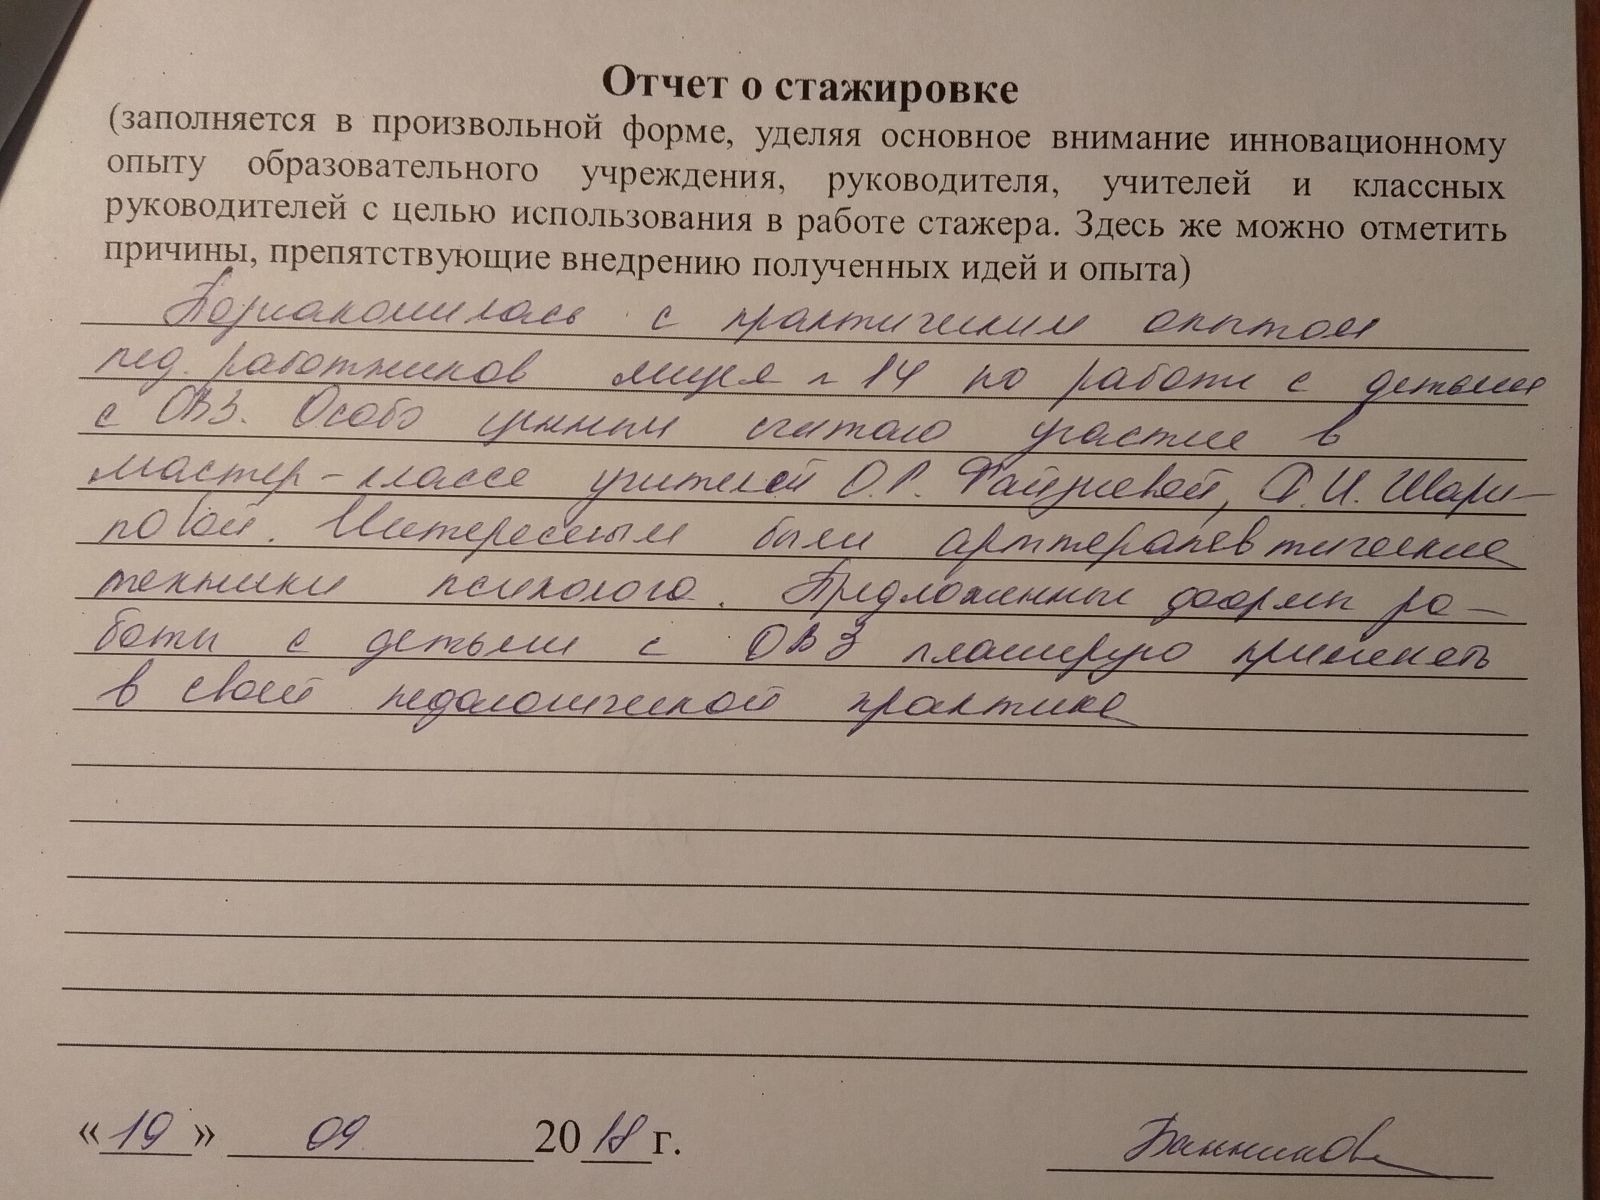 Отчет о стажировке
(заполняется в произвольной форме, уделяя основное внимание инновационному
опыту образовательного учреждения, руководителя, учителей и классных
руководителей с целью использования в работе стажера. Здесь же можно отметить
причины, препятствующие внедрению полученных идей и опыта)
Познакомилась с практическим опытом
пед. работников лицея № 14 по работе с детьми
с ОВЗ. Особо ценным считаю участие в
мастер-классе учителей О.Р. Файзиевой, Ф.И. Шари-
повой. Интересным были арттерапевтические
техники психолога. Предложенные формы ра-
боты с детьми с ОВЗ планирую применять
в своей педагогической практике
«19» 09 2018 г. Банникова